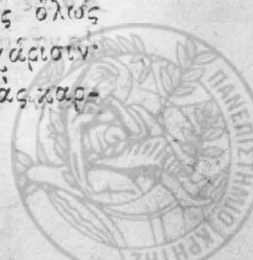 ς ὅλως
χάρισιν·
ὰς χαρ-
ΠΑΝΕΠΙΣΤΗΜΙΟ ΚΡΗΤΗΣ